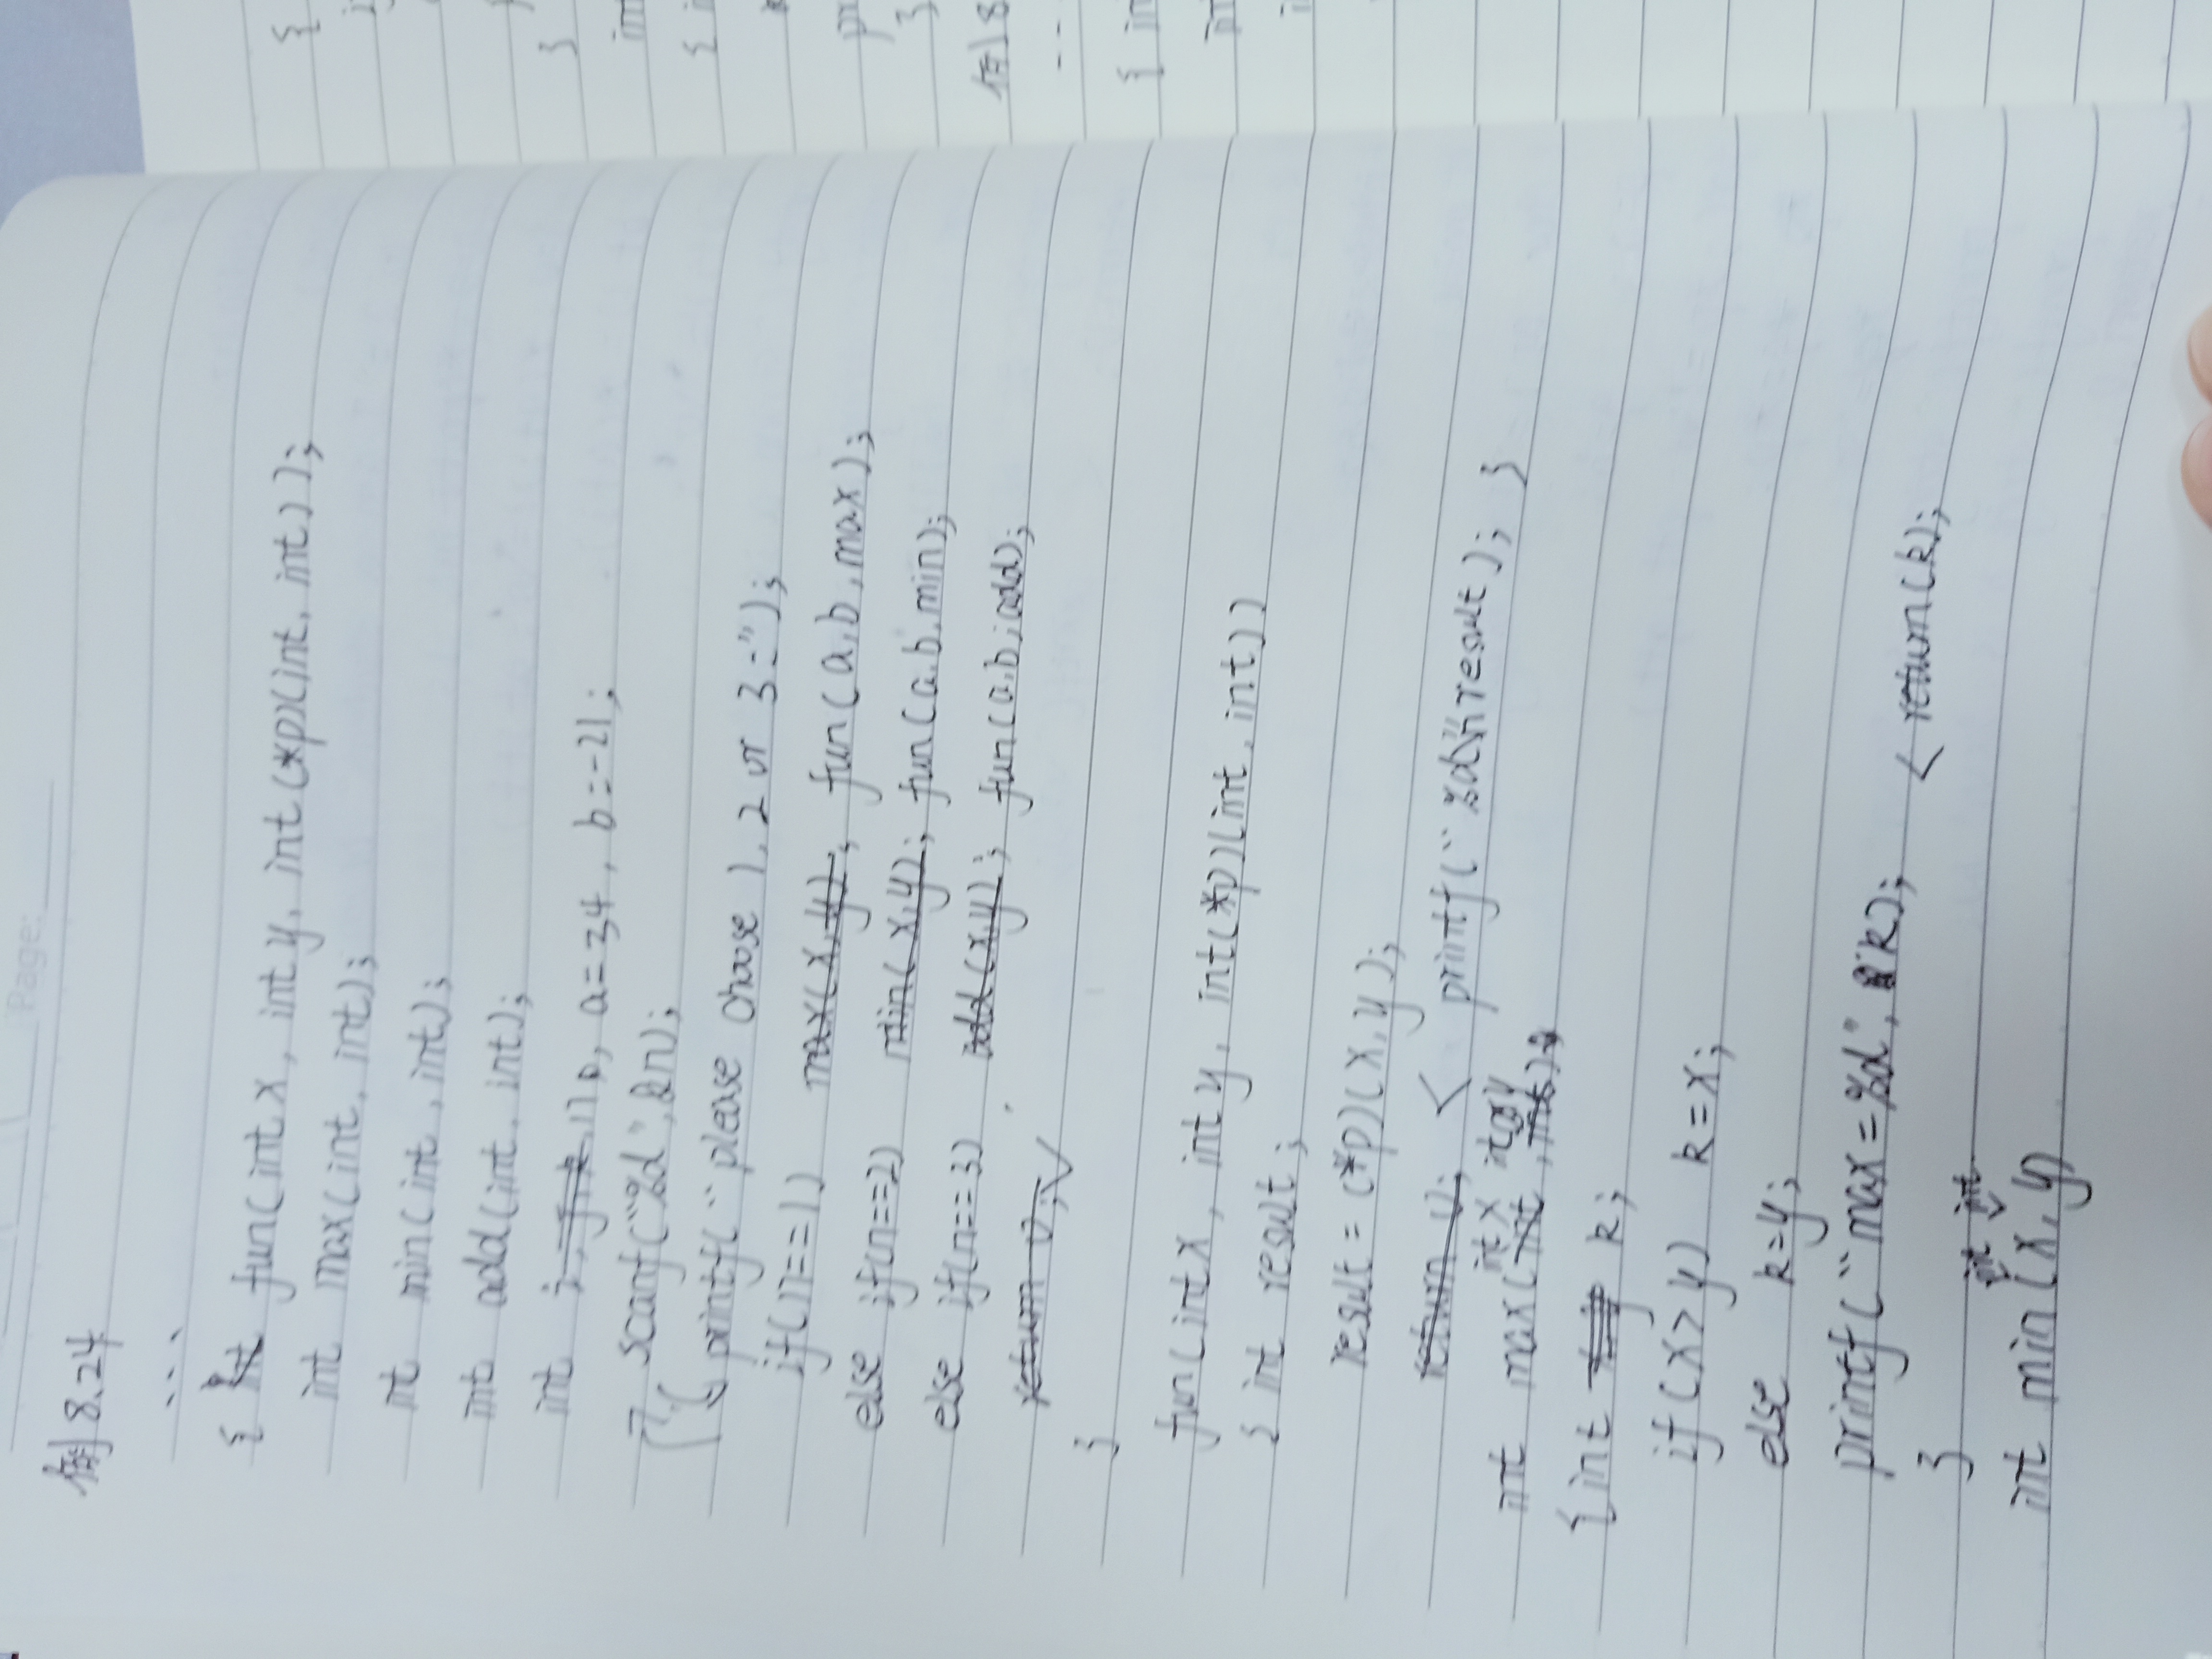 Page:
例8.24
...
{ int fun(int x, int y, int (*p)(int, int));
int max(int, int);
int min(int, int);
int add(int, int);
int n, a=34, b=-21;
scanf("%d", &n);
printf("please choose 1, 2 or 3=");
if(n==1) max(x,y); fun(a,b,max);
else if(n==2) min(x,y); fun(a,b,min);
else if(n==3) add(x,y); fun(a,b,add);
return 0;
}
fun(int x, int y, int(*p)(int, int))
{ int result;
result = (*p)(x,y);
return 0; < printf("%d\n" result); }
int x int y
int max(int, int)
{int k;
if(x>y) k=x;
else k=y;
printf("max=%d", k); < return(k);
}
int int
int min(x,y)
例8